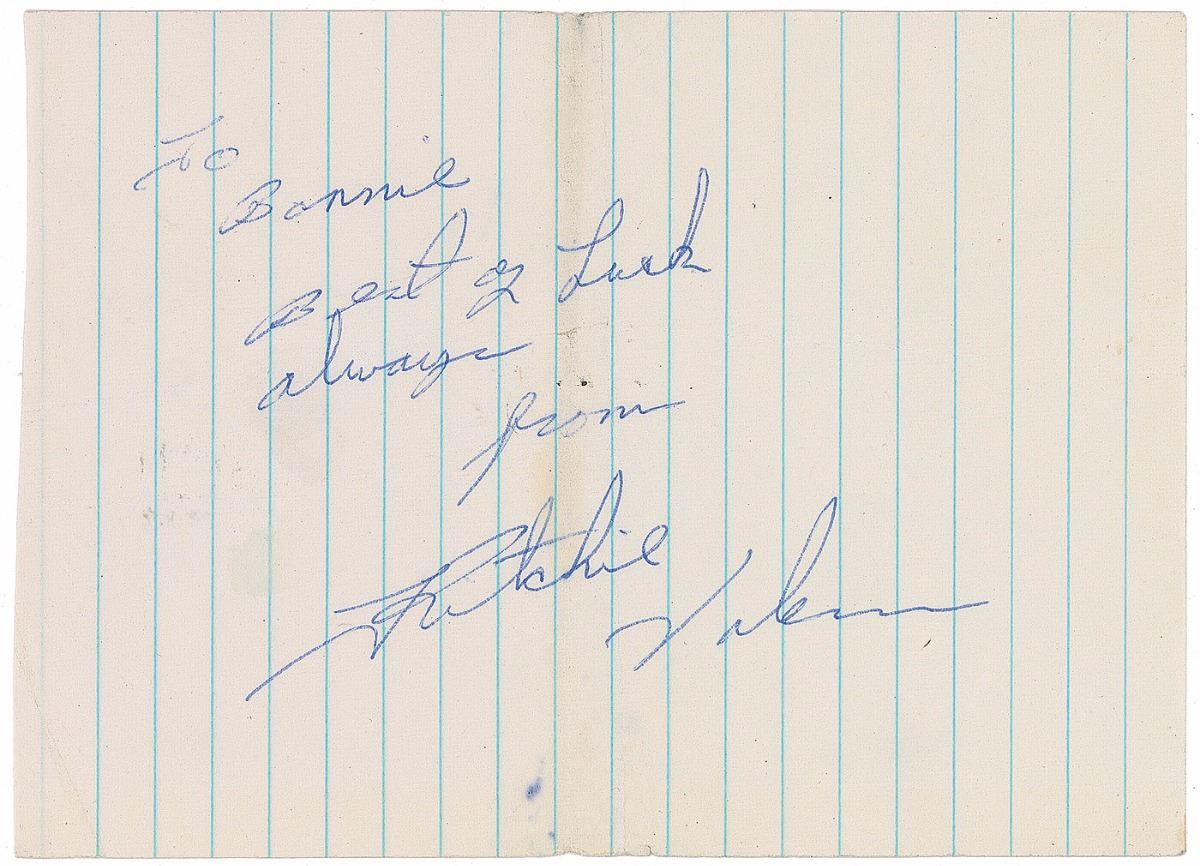 To
Bonnie
Best of Luck
always
from
Ritchie Valens